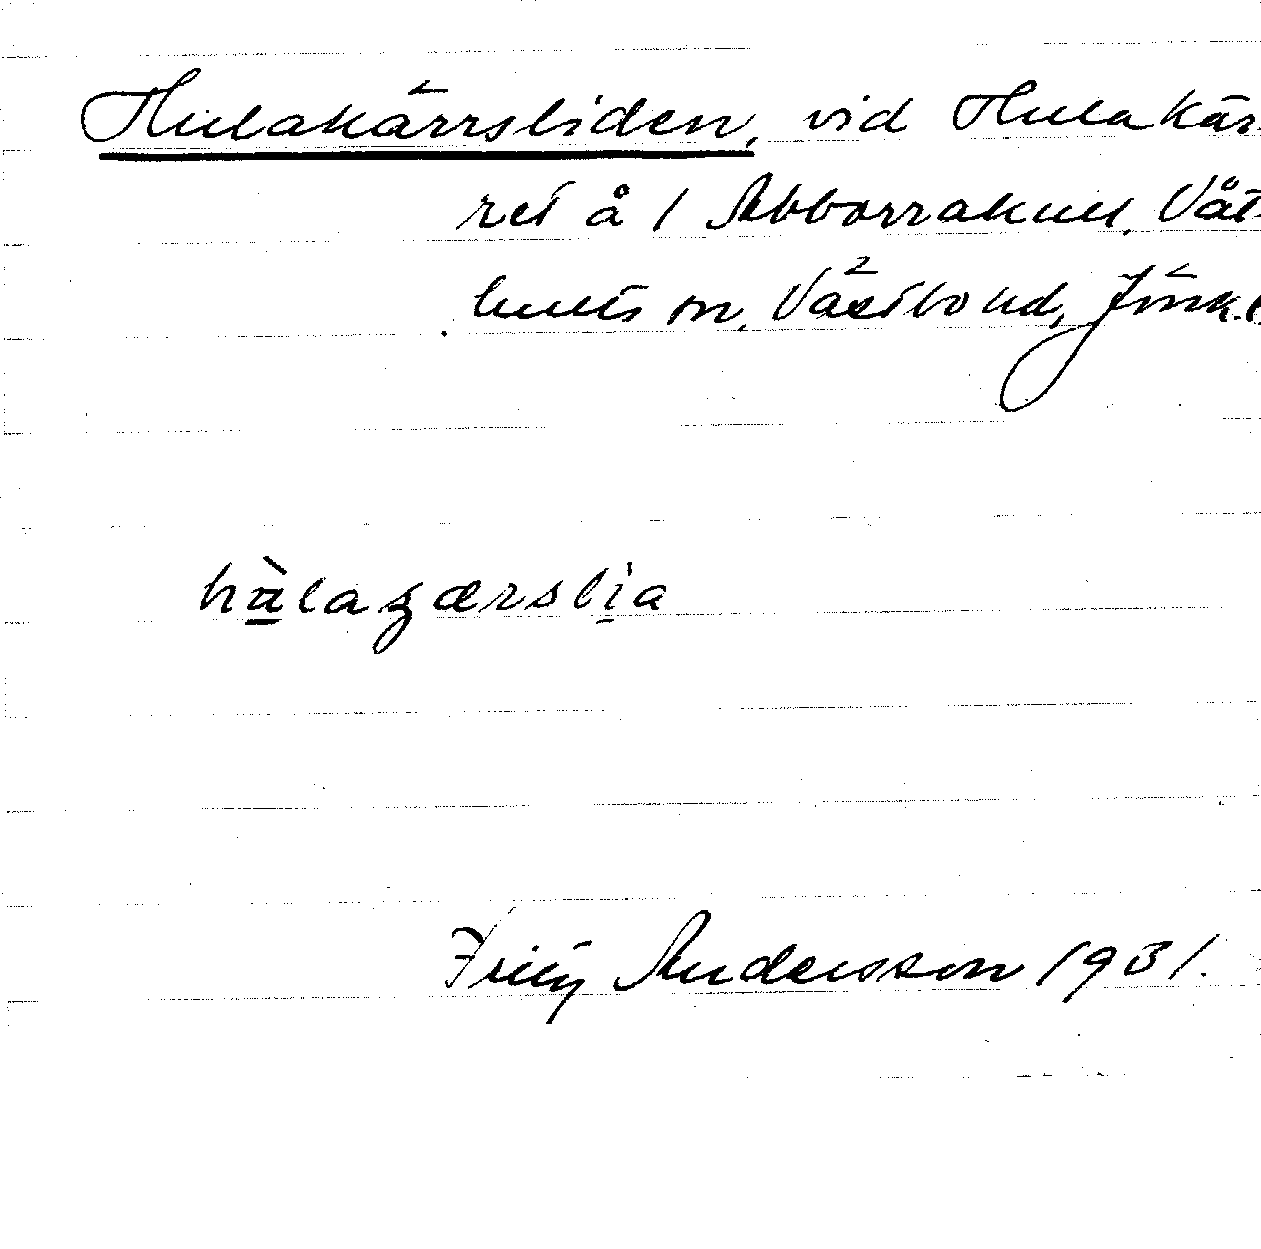 Hulakärrsliden, vid Hulakär
ret å 1 Abborrakull, Våt
hults sn, Västbo hd, Jönk.l
hùlagærslia
Fritz Andersson 1931.